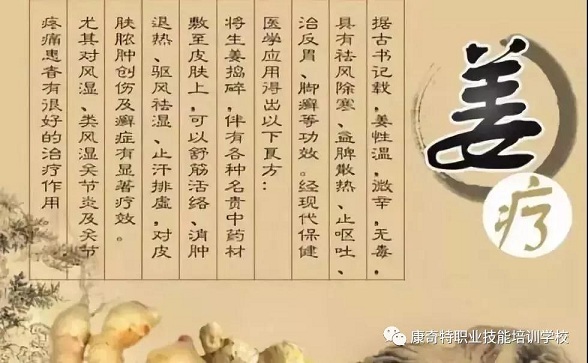 姜疗
据古书记载，姜性温，微辛，无毒，
具有祛风除寒、益脾散热、止呕吐、
治反胃、脚癣等功效。经现代保健
医学应用得出以下复方：
将生姜捣碎，伴有各种名贵中药材
敷至皮肤上，可以舒筋活络、消肿
退热、驱风祛湿、止汗排虚，对皮
肤脓肿创伤及癣症有显著疗效。
尤其对风湿、类风湿关节炎及关节
疼痛患者有很好的治疗作用。
康奇特职业技能培训学校